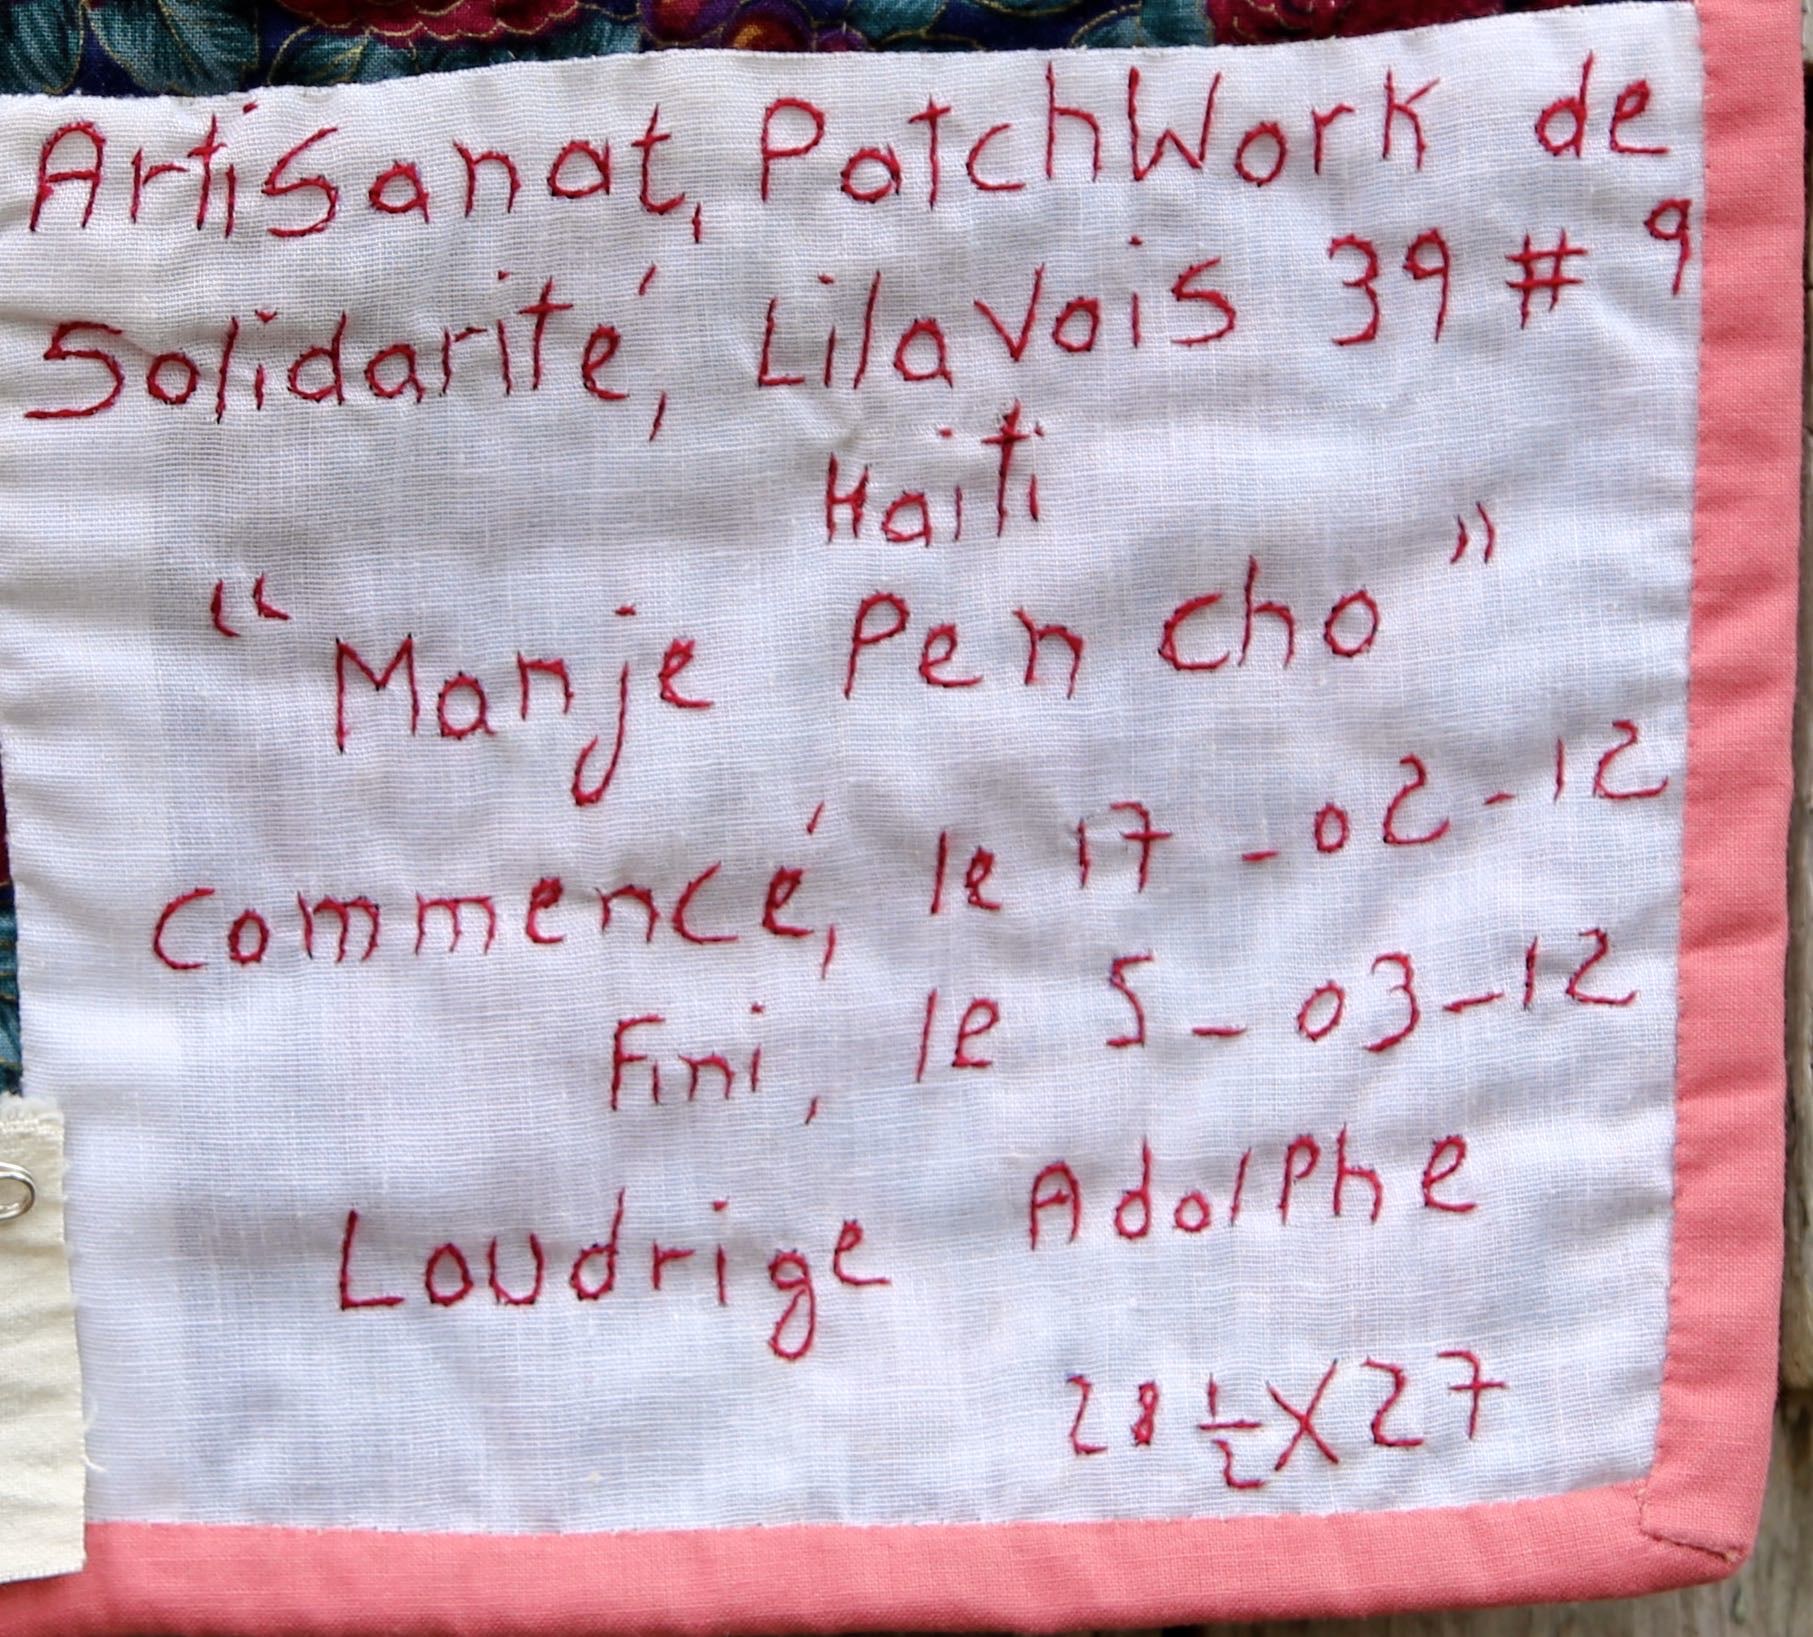 ArtiSanat, PatchWork de
Solidarité, Lilavois 39 # 9
Haiti
“Manje Pen cho”
commencé, le 17-02-12
Fini, le 5-03-12
Loudrige Adolphe
28 1/2 X 27